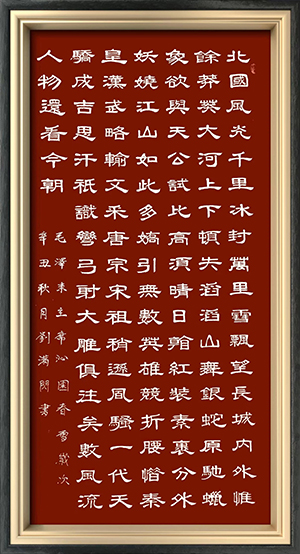 北國風光千里冰封萬里雪飄望長城內外惟
餘莽莽大河上下頓失滔滔山舞銀蛇原馳蠟
象欲與天公試比高須晴日看紅裝素裹分外
妖嬈江山如此多嬌引無數英雄競折腰惜秦
皇漢武略輸文采唐宗宋祖稍遜風騷一代天
驕成吉思汗祇識彎弓射大雕俱往矣數風流
人物還看今朝
毛澤東主席沁園春雪歲次
辛丑秋月劉滿書